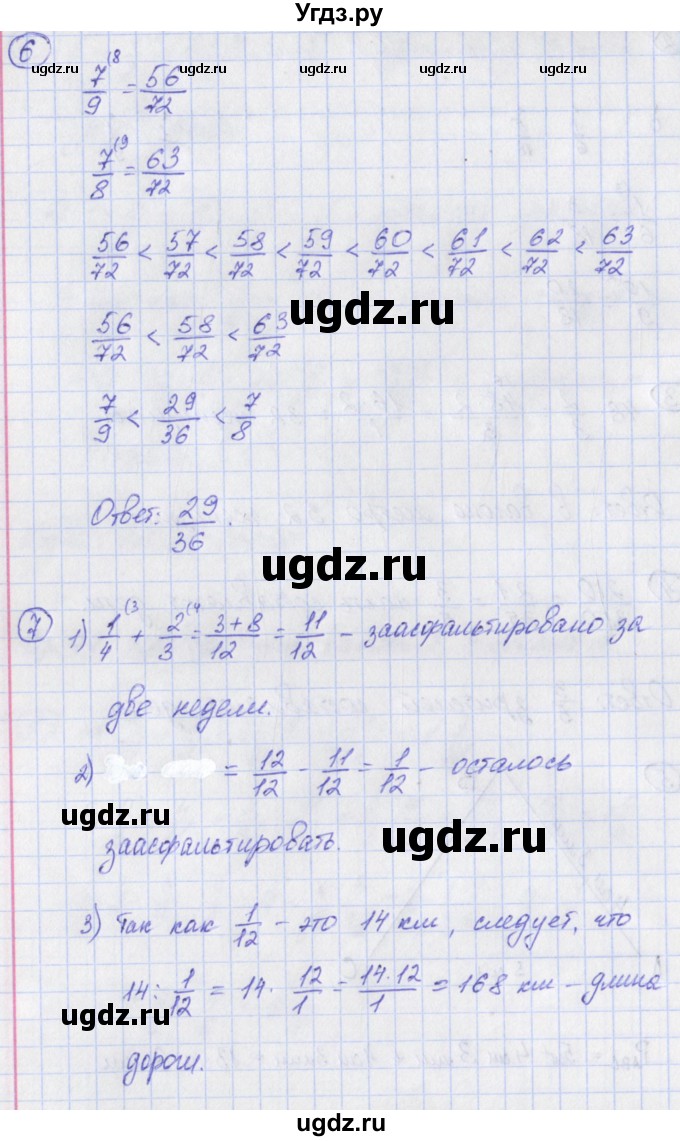 Угдз.ру
6
7/9 (8 = 56/72
ugdz.ru ugdz.ru ugdz.ru ugdz.ru ugdz.ru
7/8 (9 = 63/72
56/72 < 57/72 < 58/72 < 59/72 < 60/72 < 61/72 < 62/72 < 63/72
ugdz.ru
56/72 < 58/72 < 63/72
7/9 < 29/36 < 7/8
Ответ: 29/36.
ugdz.ru
7 1) 1/4 (3 + 2/3 (4 = 3+8/12 = 11/12 – заасфальтировано за
две недели.
2) = 12/12 - 11/12 = 1/12 – осталось
ugdz.ru
ugdz.ru
заасфальтировать.
3) Так как 1/12 – это 14 км, следует, что
14 : 1/12 = 14 · 12/1 = 14·12/1 = 168 км – длина
ugdz.ru
дороги.
ugdz.ru